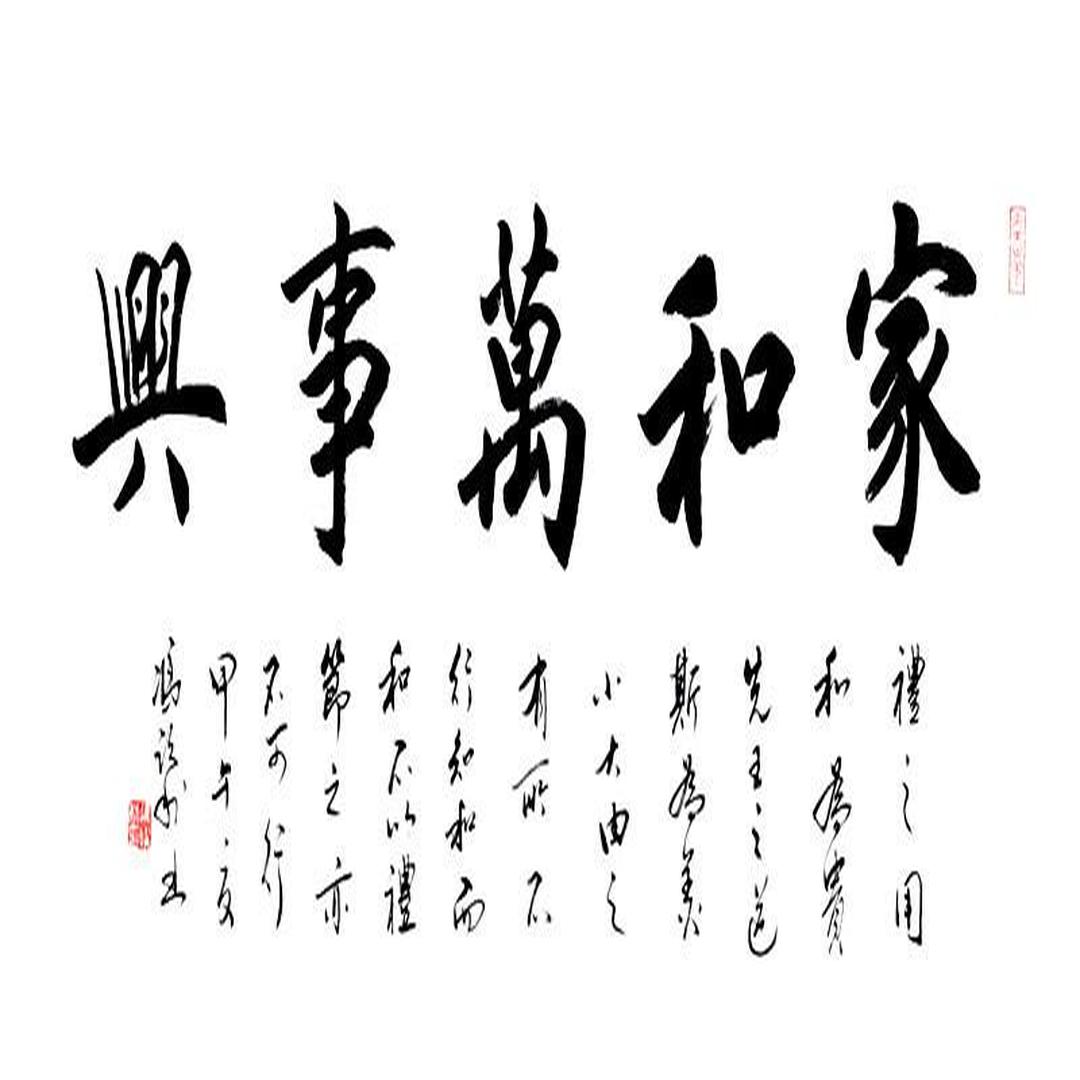 家和萬事興
禮之用
和為貴
先王之道
斯為美
小大由之
有所不
行知和而
和不以禮
節之亦
不可行
甲午之夏
書